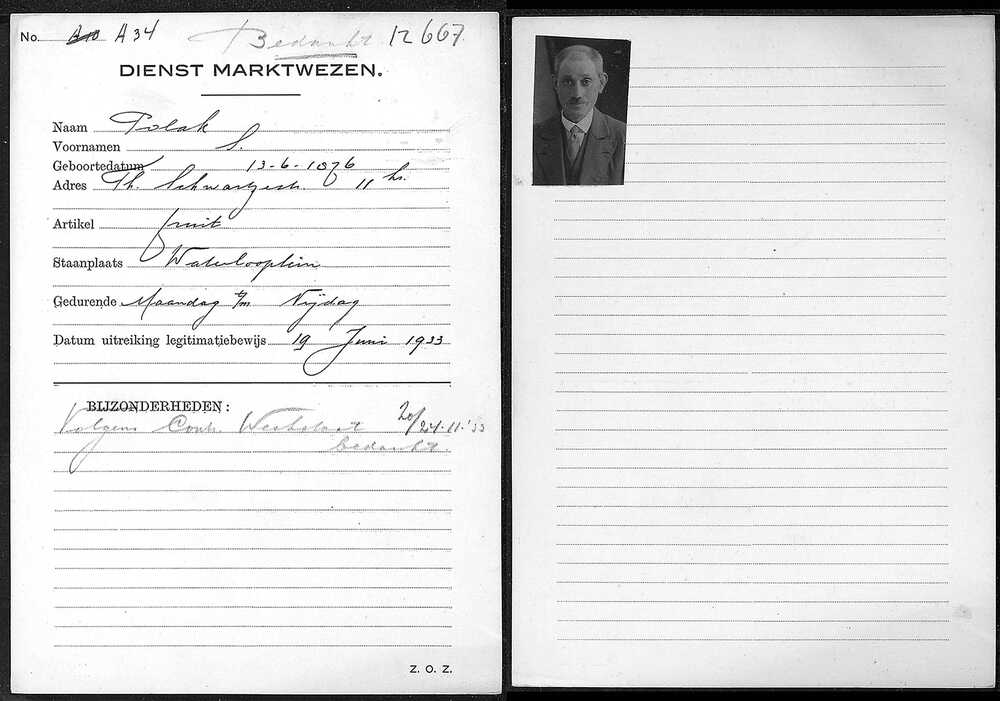 No. A10 A 34 Bedankt 12667
DIENST MARKTWEZEN.
Naam Polak
Voornamen S.
Geboortedatum 13-6-1876
Adres Th. Schwartzestr. 11 hs.
Artikel fruit
Staanplaats Waterlooplein
Gedurende Maandag t/m Vrijdag
Datum uitreiking legitimatiebewijs 19 Juni 1933
BIJZONDERHEDEN:
Volgens Contr. Weekstaat 20/24-11-'33
bedankt.
Z. O. Z.